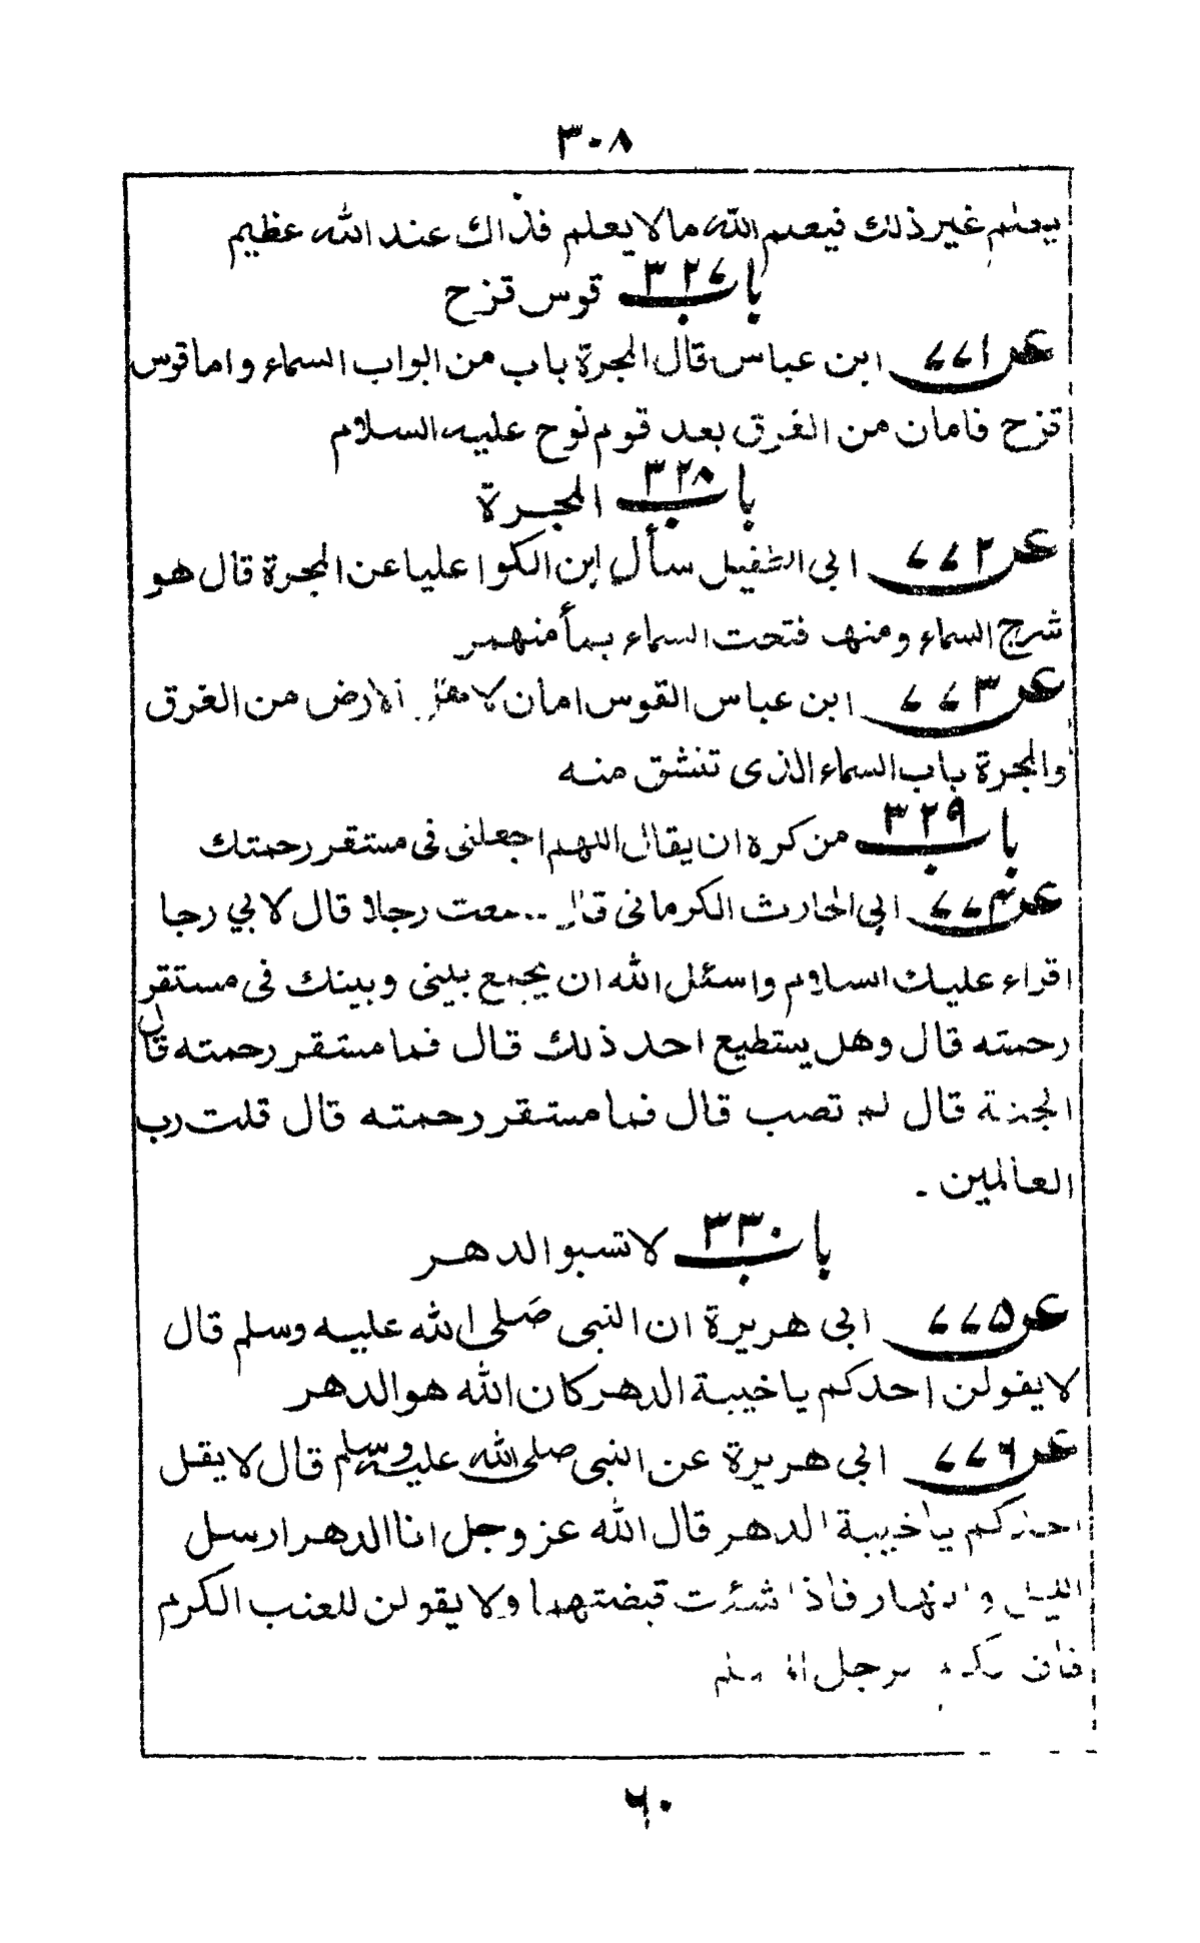 ٣٠٨
يعلم غير ذلك فيعلم الله ما لا يعلم فذاك عند الله عظيم
باب ٣٢٧ قوس قزح
عن ٧٧١ ابن عباس قال المجرة باب من ابواب السماء واما قوس
قزح فامان من الغرق بعد قوم نوح عليه السلام
باب ٣٢٨ المجرة
عن ٧٧٢ ابى الطفيل سأل ابن الكوا عليا عن المجرة قال هو
شرج السماء ومنها فتحت السماء بمأ منهمر
عن ٧٧٣ ابن عباس القوس امان لا الارض من الغرق
والمجرة باب السماء الذى تنشق منه
باب ٣٢٩ من كره ان يقال اللهم اجعلنى فى مستقر رحمتك
عن ٧٧٤ ابى الحارث الكرمانى قال سمعت رجلا قال لابي رجا
اقراء عليك السلام واسئل الله ان يجمع بينى وبينك فى مستقر
رحمته قال وهل يستطيع احد ذلك قال فما مستقر رحمته قال
الجنة قال لم تصب قال فما مستقر رحمته قال قلت رب
العالمين ـ
باب ٣٣٠ لا تسبوا الدهر
عن ٧٧٥ ابى هريرة ان النبى صلى الله عليه وسلم قال
لا يقولن احدكم يا خيبة الدهر كان الله هو الدهر
عن ٧٧٦ ابى هريرة عن النبى صلى الله عليه وسلم قال لا يقل
احدكم يا خيبة الدهر قال الله عز وجل انا الدهر ارسل
الليل والنهار فاذا شئت قبضتهما ولا يقولن للعنب الكرم
فان الكرم الرجل المسلم
٦٠